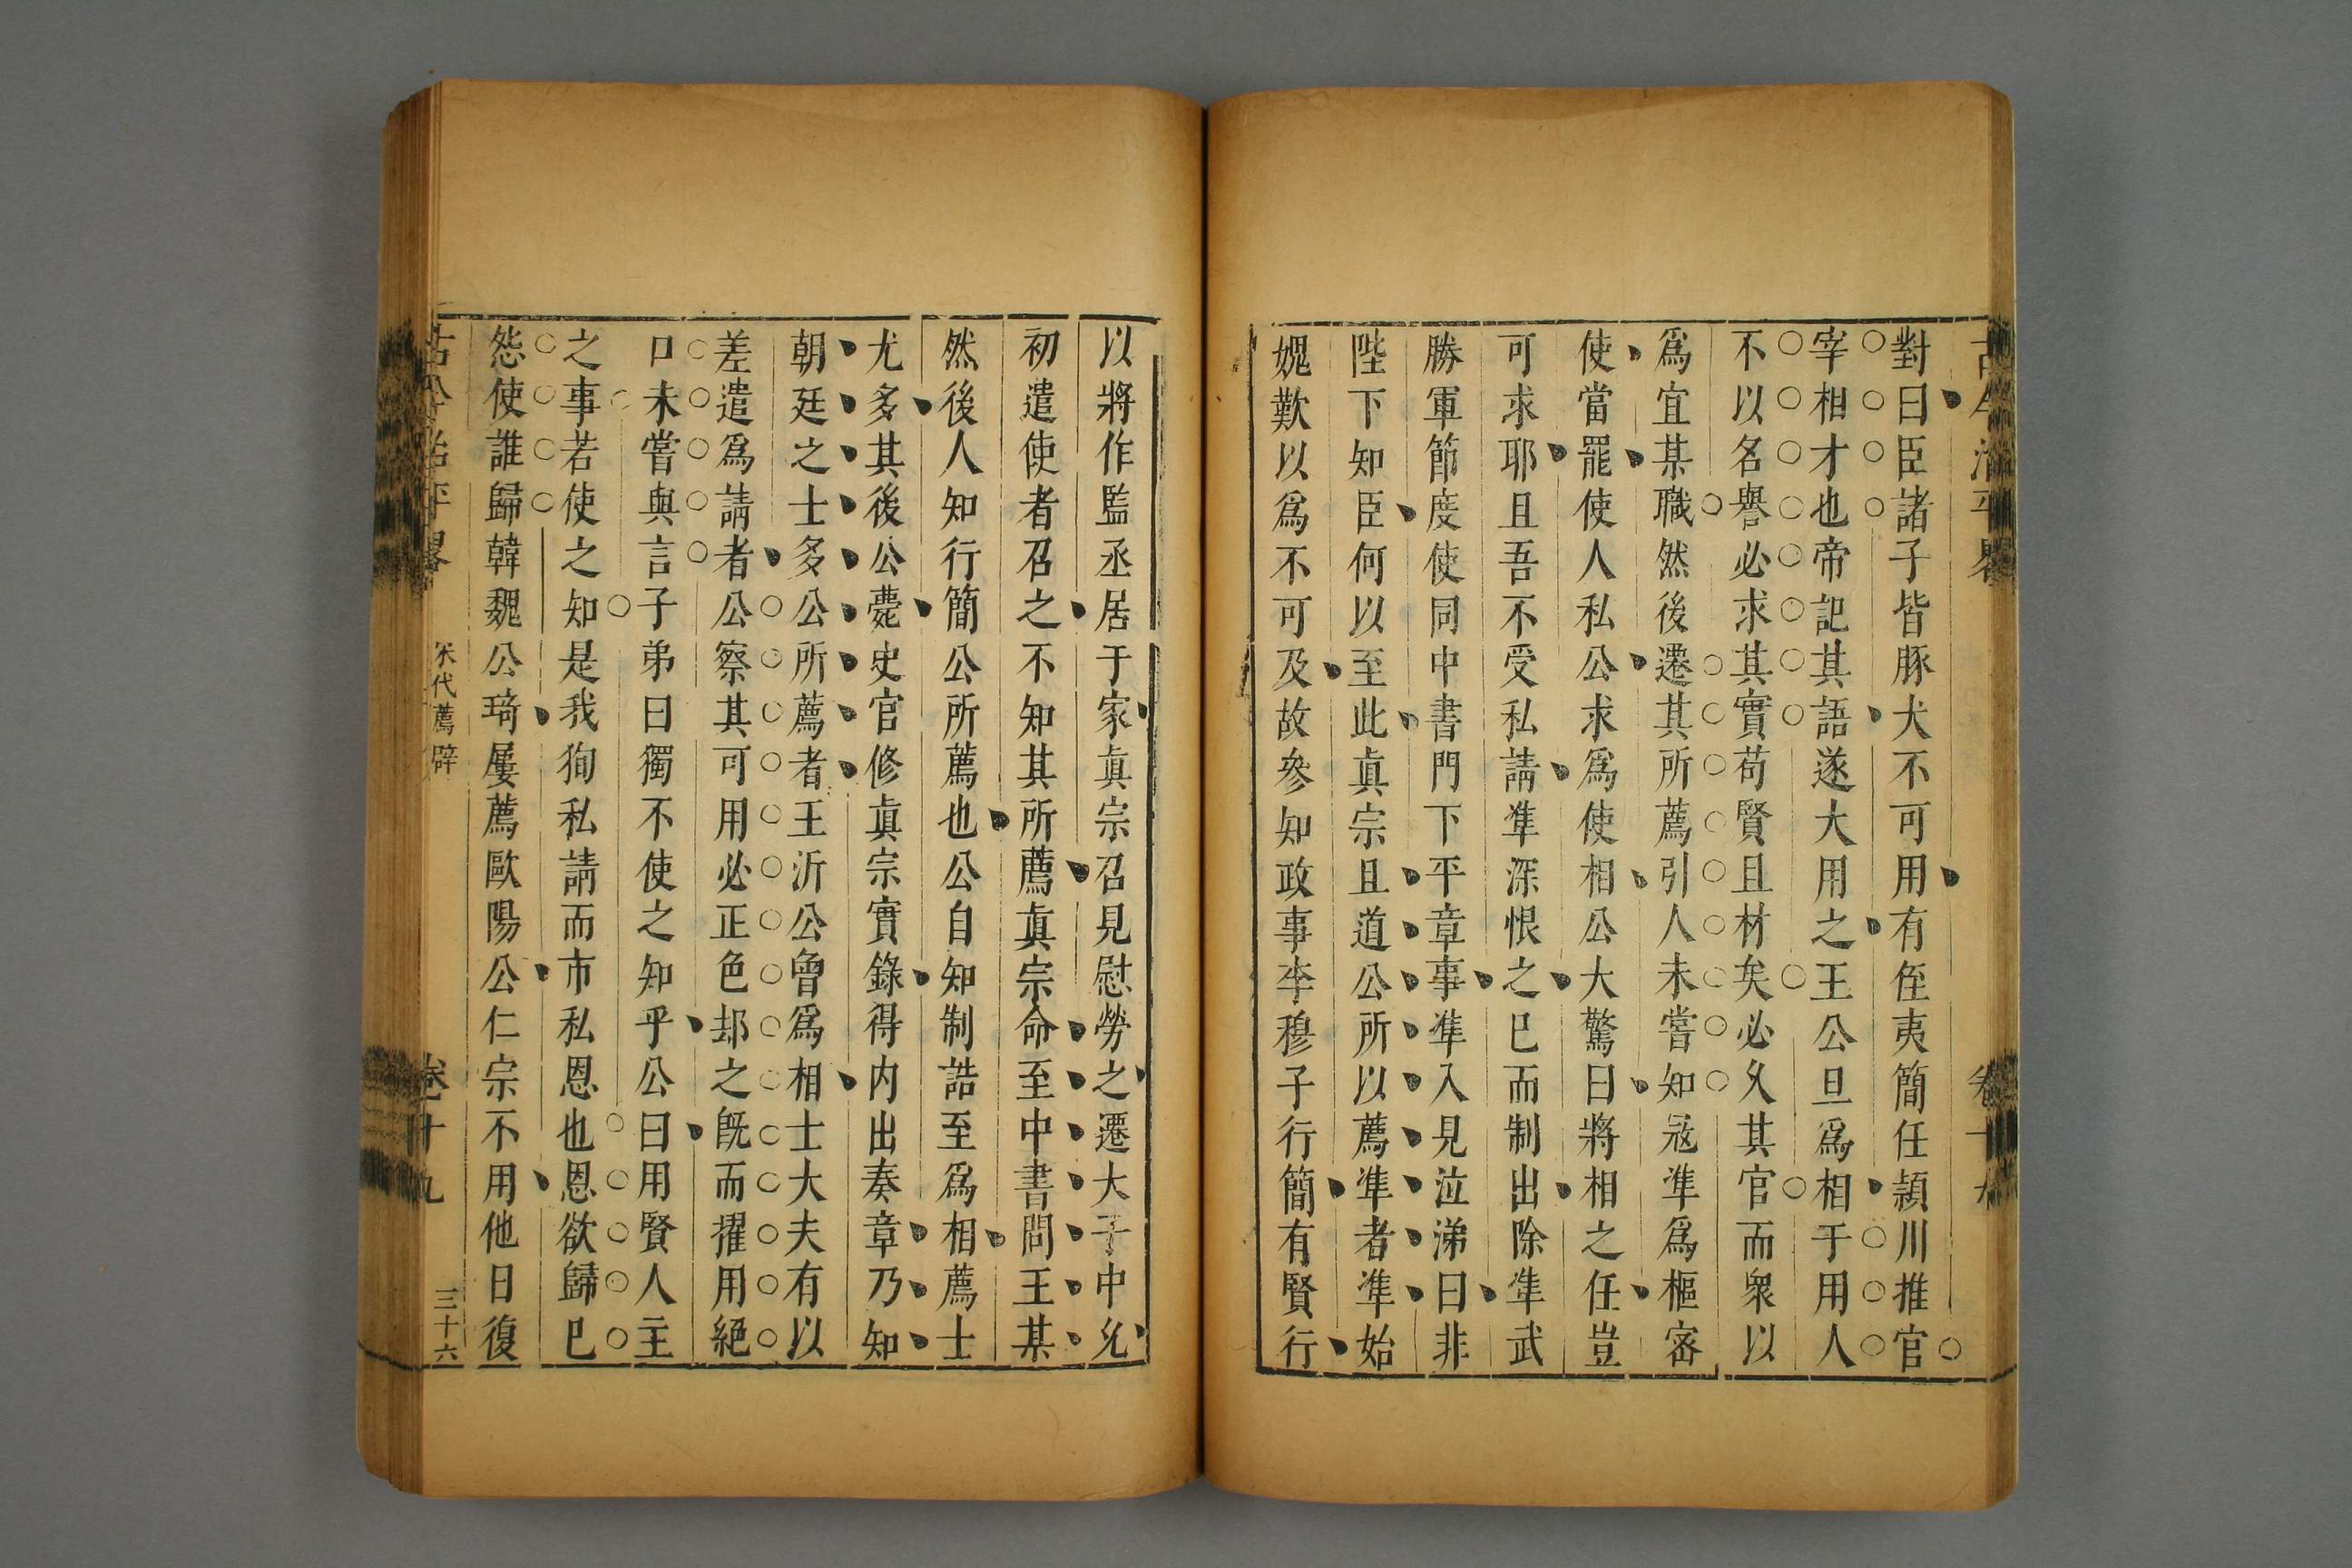 對曰臣諸子皆豚犬不可用有侄夷簡任頴川推官
宰相才也帝記其語遂大用之王公旦爲相于用人
不以名譽必求其實苟賢且材矣必久其官而衆以
爲宜某職然後遷其所薦引人未嘗知冦準爲樞宻
使當罷使人私公求爲使相公大驚曰將相之任豈
可求耶且吾不受私請準深恨之已而制出除準武
勝軍節度使同中書門下平章事準入見泣涕曰非
陛下知臣何以至此真宗且道公所以薦準者準始
媿歎以爲不可及故叅知政事李穆子行簡有賢行
以將作監丞居于家真宗召見慰勞之遷大子中允
初遣使者召之不知其所薦真宗命至中書問王某
然後人知行簡公所薦也公自知制誥至爲相薦士
尤多其後公薨史官修真宗實錄得内出奏章乃知
朝廷之士多公所薦者王沂公曾爲相士大夫有以
差遣爲請者公察其可用必正色却之旣而擢用絕
口未嘗與言子弟曰獨不使之知乎公曰用賢人主
之事若使之知是我狥私請而市私恩也恩欲歸巳
怨使誰歸韓魏公琦屢薦歐陽公仁宗不用他日復
古今治平畧
宋代薦辟
卷十九
三十六